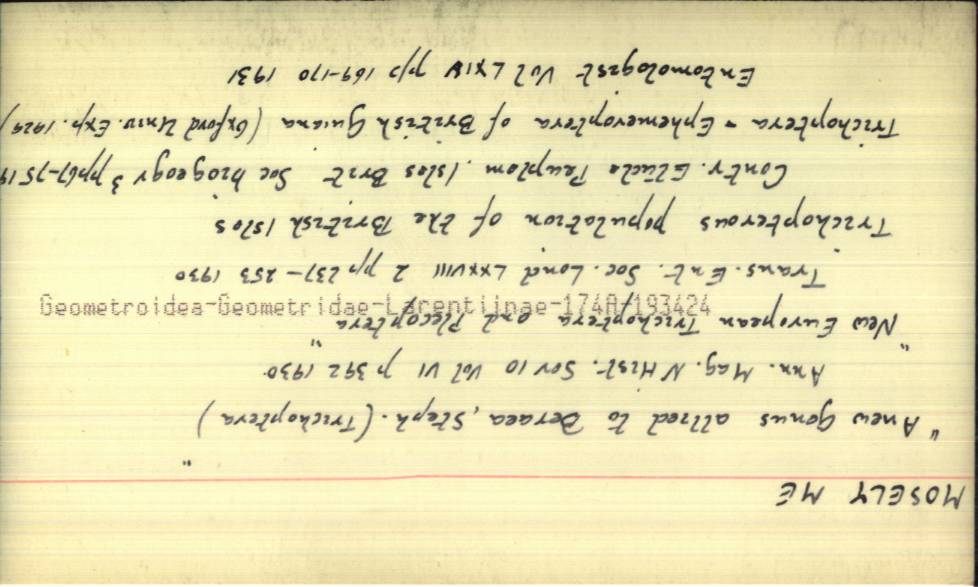 MOSELY ME
"
" A new genus allied to Beraea, Steph. (Trichoptera)
Ann. Mag. N Hist. Ser 10 Vol VI p 392 1930
"New European Trichoptera and Plecoptera"
Trans. Ent. Soc. Lond LXXVIII 2 pp 237-253 1930
Trichopterous population of the British Isles
Contr. Etude Peuplem. Isles Brit Soc biogeogr 3 pp 67-75 19
Trichoptera & Ephemeroptera of British Guiana (Oxford Univ. Exp. 1929)
Entomologist Vol LXIV pp 169-170 1931
Geometroidea-Geometridae-Larentiinae-174A/193424